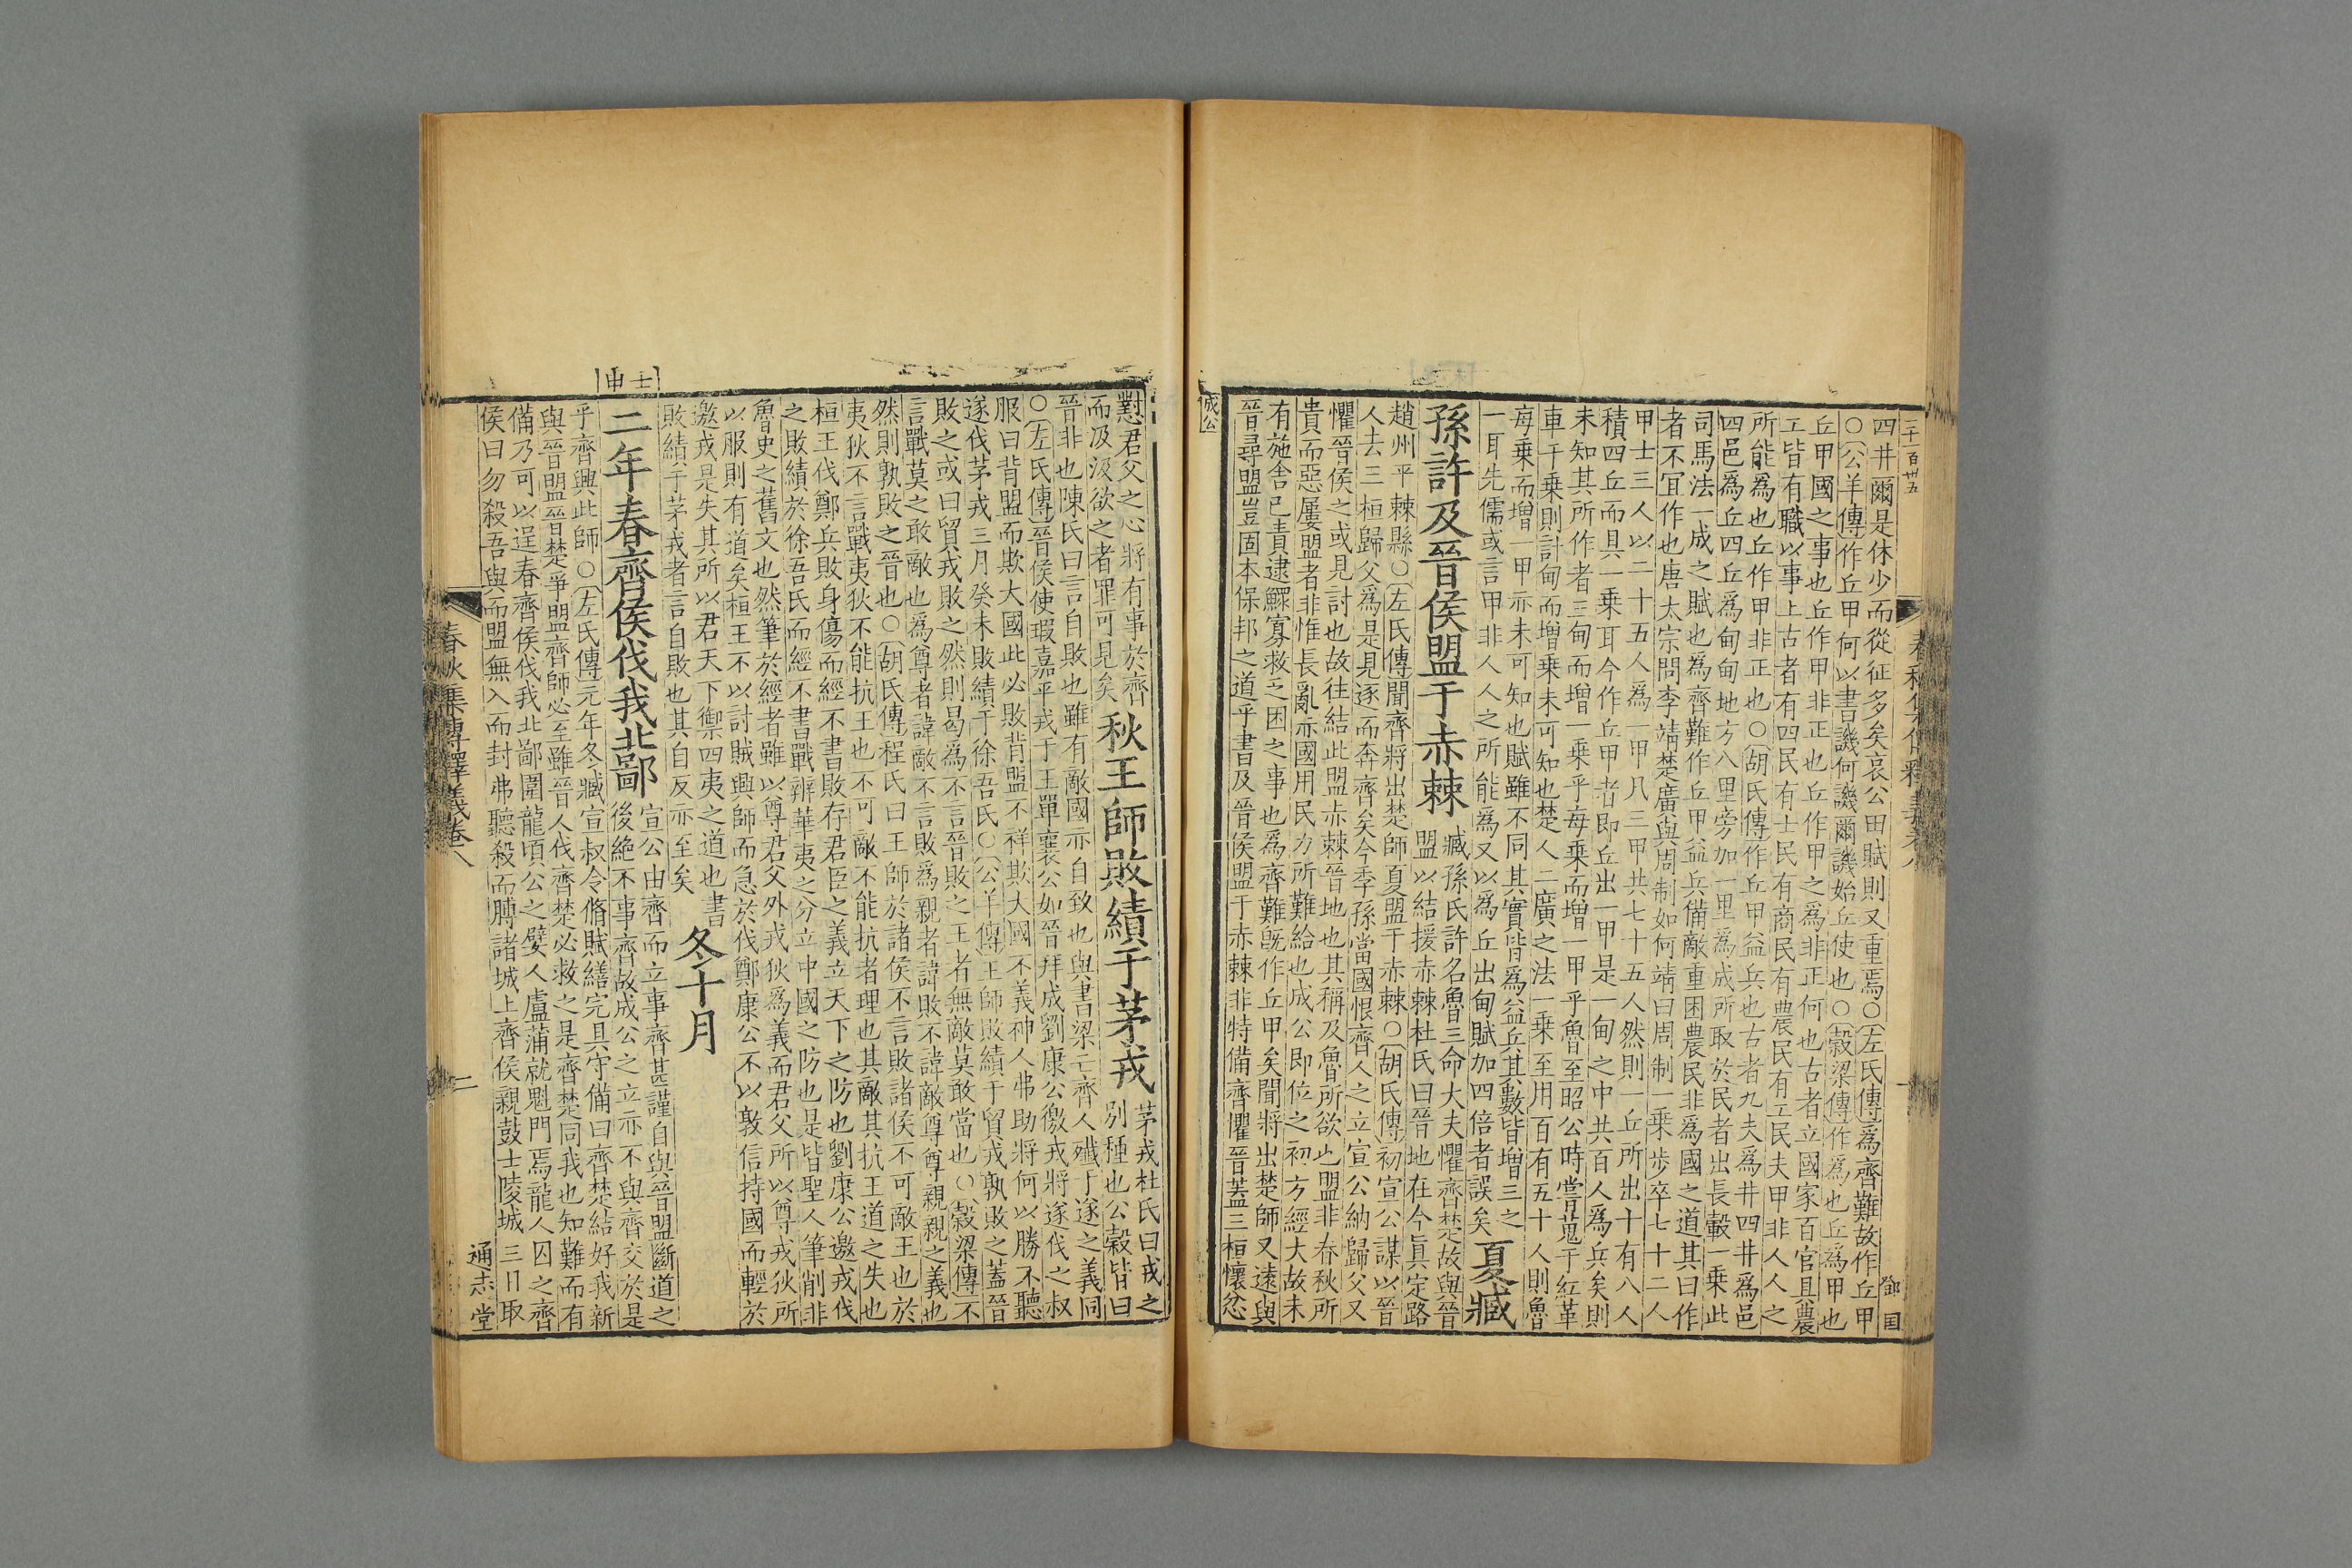 三十一百卅五
春秋集傳釋義卷八
鄧国
四井爾是休少而從征多矣哀公田賦則又重焉○左氏傳爲齊難故作丘甲
○公羊傳作丘甲何以書譏何譏爾譏始丘使也○穀梁傳作爲也丘爲甲也
丘甲國之事也丘作甲非正也丘作甲之爲非正何也古者立國家百官具農
工皆有職以事上古者有四民有士民有商民有農民有工民夫甲非人人之
所能爲也丘作甲非正也○胡氏傳作丘甲益兵也古者九夫爲井四井爲邑
四邑爲丘四丘爲甸甸地方八里旁加一里爲成所取於民者出長轂一乗此
司馬法一成之賦也爲齊難作丘甲益兵備敵重困農民非爲國之道其曰作
者不宜作也唐太宗問李靖楚廣與周制如何靖曰周制一乗步卒七十二人
甲士三人以二十五人爲一甲凡三甲共七十五人然則一丘所出十有八人
積四丘而具一乗耳今作丘甲者即丘出一甲是一甸之中共百人爲兵矣則
未知其所作者三甸而增一乗乎每乗而增一甲乎魯至昭公時嘗蒐于紅革
車千乗則計甸而增乗未可知也楚人二廣之法一乗至用百有五十人則魯
每乗而增一甲亦未可知也賦雖不同其實皆爲益兵其數皆增三之
一耳先儒或言甲非人人之所能爲又以爲丘出甸賦加四倍者誤矣
夏臧
孫許及晉侯盟于赤棘
臧孫氏許名魯三命大夫懼齊楚故與晉
盟以結援赤棘杜氏曰晉地在今眞定路
趙州平棘縣○左氏傳聞齊將出楚師夏盟于赤棘○胡氏傳初宣公謀以晉
人去三桓歸父爲是見逐而奔齊矣今季孫當國恨齊人之立宣公納歸父又
懼晉侯之或見討也故往結此盟赤棘晉地也其稱及魯所欲也盟非春秋所
貴而惡屢盟者非惟長亂亦國用民力所難給也成公即位之初方經大故未
有施舍已責逮鰥寡救乏困之事也爲齊難旣作丘甲矣聞將出楚師又遠與
晉尋盟豈固本保邦之道乎書及晉侯盟于赤棘非特備齊懼晉蓋三桓懷忿
成公
懟君父之心將有事於齊
而汲汲欲之者罪可見矣
秋王師敗績于茅戎
茅戎杜氏曰戎之
別種也公穀皆曰
晉非也陳氏曰言自敗也雖有敵國亦自致也與書梁亡齊人殲于遂之義同
○左氏傳晉侯使瑕嘉平戎于王單襄公如晉拜成劉康公徼戎將遂伐之叔
服曰背盟而欺大國此必敗背盟不祥欺大國不義神人弗助將何以勝不聽
遂伐茅戎三月癸未敗績于徐吾氏○公羊傳王師敗績于貿戎孰敗之蓋晉
敗之或曰貿戎敗之然則曷爲不言晉敗之王者無敵莫敢當也○穀梁傳不
言戰莫之敢敵也爲尊者諱敵不言敗爲親者諱敗不諱敵尊尊親親之義也
然則孰敗之晉也○胡氏傳程氏曰王師於諸侯不言敗諸侯不可敵王也於
夷狄不言戰夷狄不能抗王也不可敵不能抗者理也其敵其抗王道之失也
桓王伐鄭兵敗身傷而經不書敗存君臣之義立天下之防也劉康公邀戎伐
之敗績於徐吾氏而經不書戰辨華夷之分立中國之防也是皆聖人筆削非
魯史之舊文也然筆於經者雖以尊君父外戎狄爲義而君父所以尊戎狄所
以服則有道矣桓王不以討賊興師而急於伐鄭康公不以敦信持國而輕於
邀戎是失其所以君天下禦四夷之道也書
敗績于茅戎者言自敗也其自反亦至矣
冬十月
壬申
二年春齊侯伐我北鄙
宣公由齊而立事齊甚謹自與晉盟斷道之
後絶不事齊故成公之立亦不與齊交於是
乎齊興此師○左氏傳元年冬臧宣叔令脩賦繕完具守備曰齊楚結好我新
與晉盟晉楚爭盟齊師必至雖晉人伐齊楚必救之是齊楚同我也知難而有
備乃可以逞春齊侯伐我北鄙圍龍頃公之嬖人盧蒲就魁門焉龍人囚之齊
侯曰勿殺吾與而盟無入而封弗聽殺而膊諸城上齊侯親鼓士陵城三日取
春秋集傳釋義卷八
二
通志堂